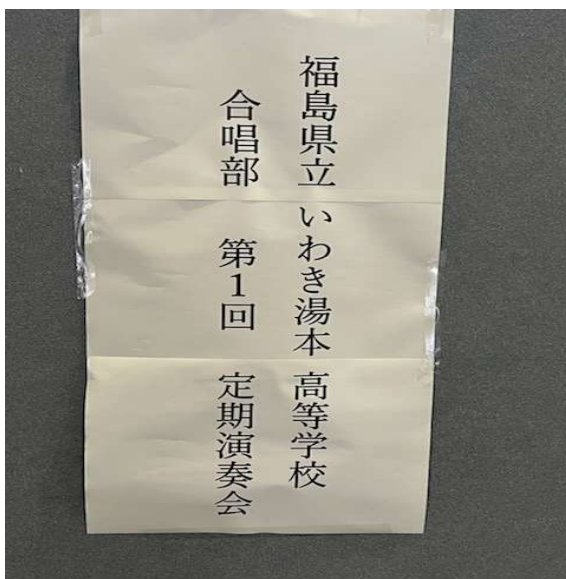 福島県立いわき湯本高等学校
合唱部 第1回 定期演奏会